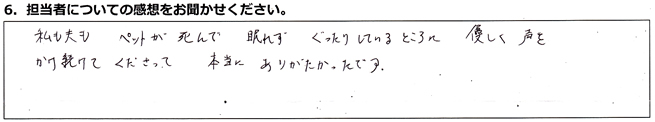 6．担当者についての感想をお聞かせください。
私も夫も ペットが死んで 眠れず ぐったりしているところに 優しく声を
かけ続けてくださって 本当に ありがたかったです.